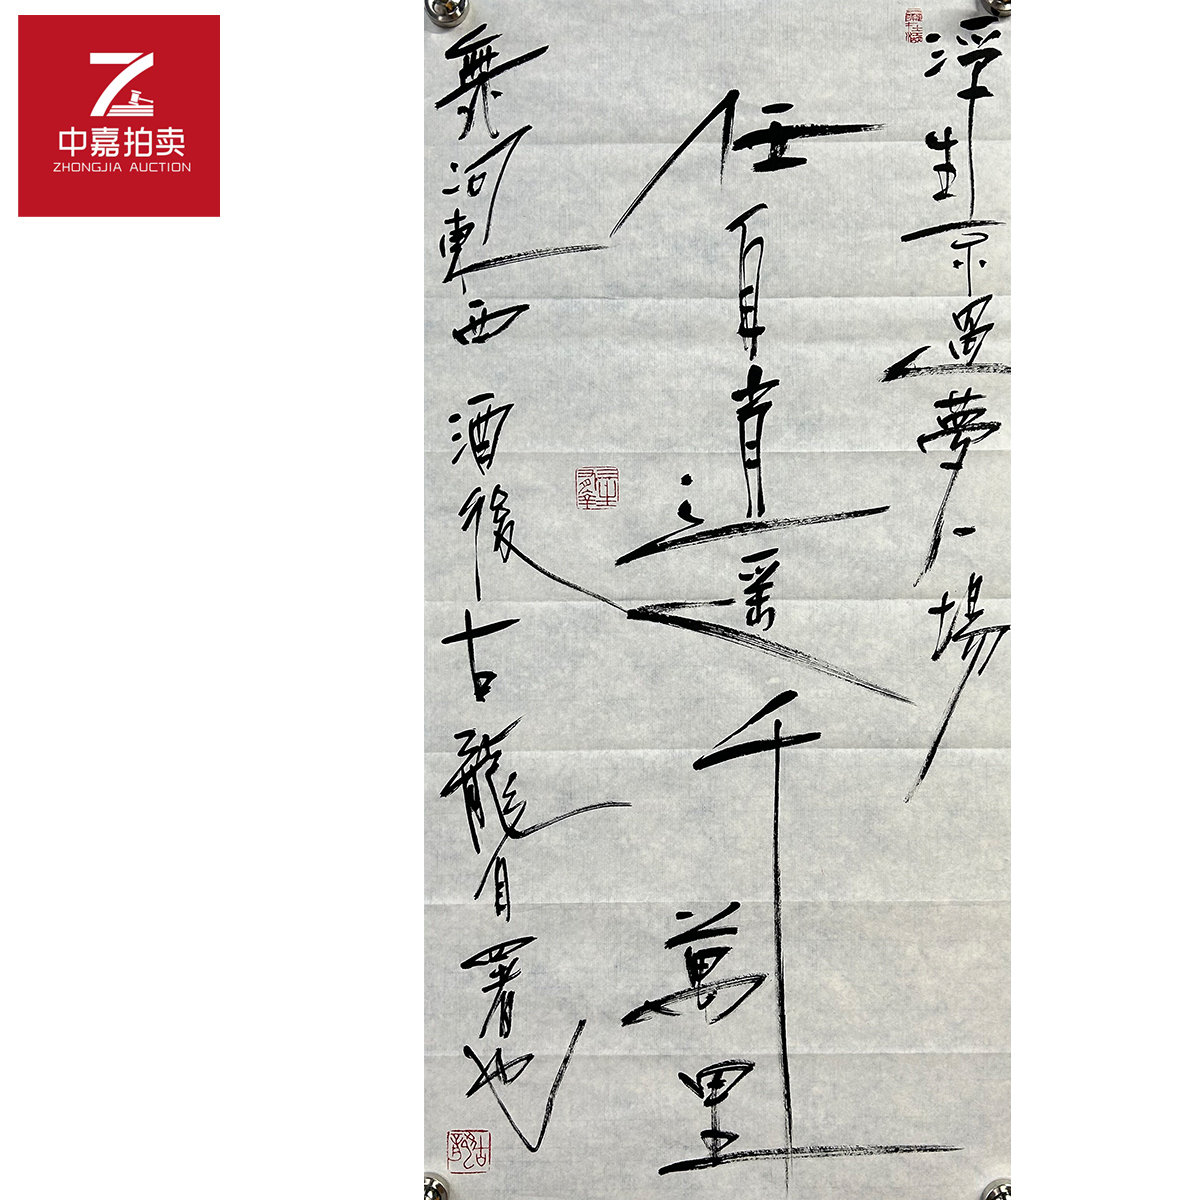 中嘉拍卖
ZHONGJIA AUCTION
浮生不過夢一場
任自逍遥千萬里
無河東西 酒後古龍自署也